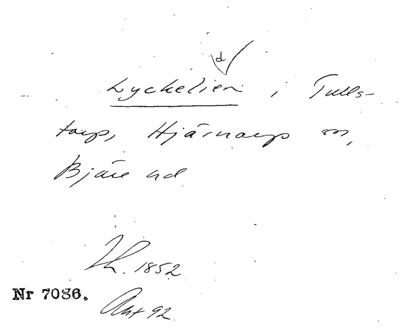 d
Lyckelien i Tulls-
torp, Hjärnarp sn,
Bjäre hd
Th. 1852
Nr 7086.
Ant 92